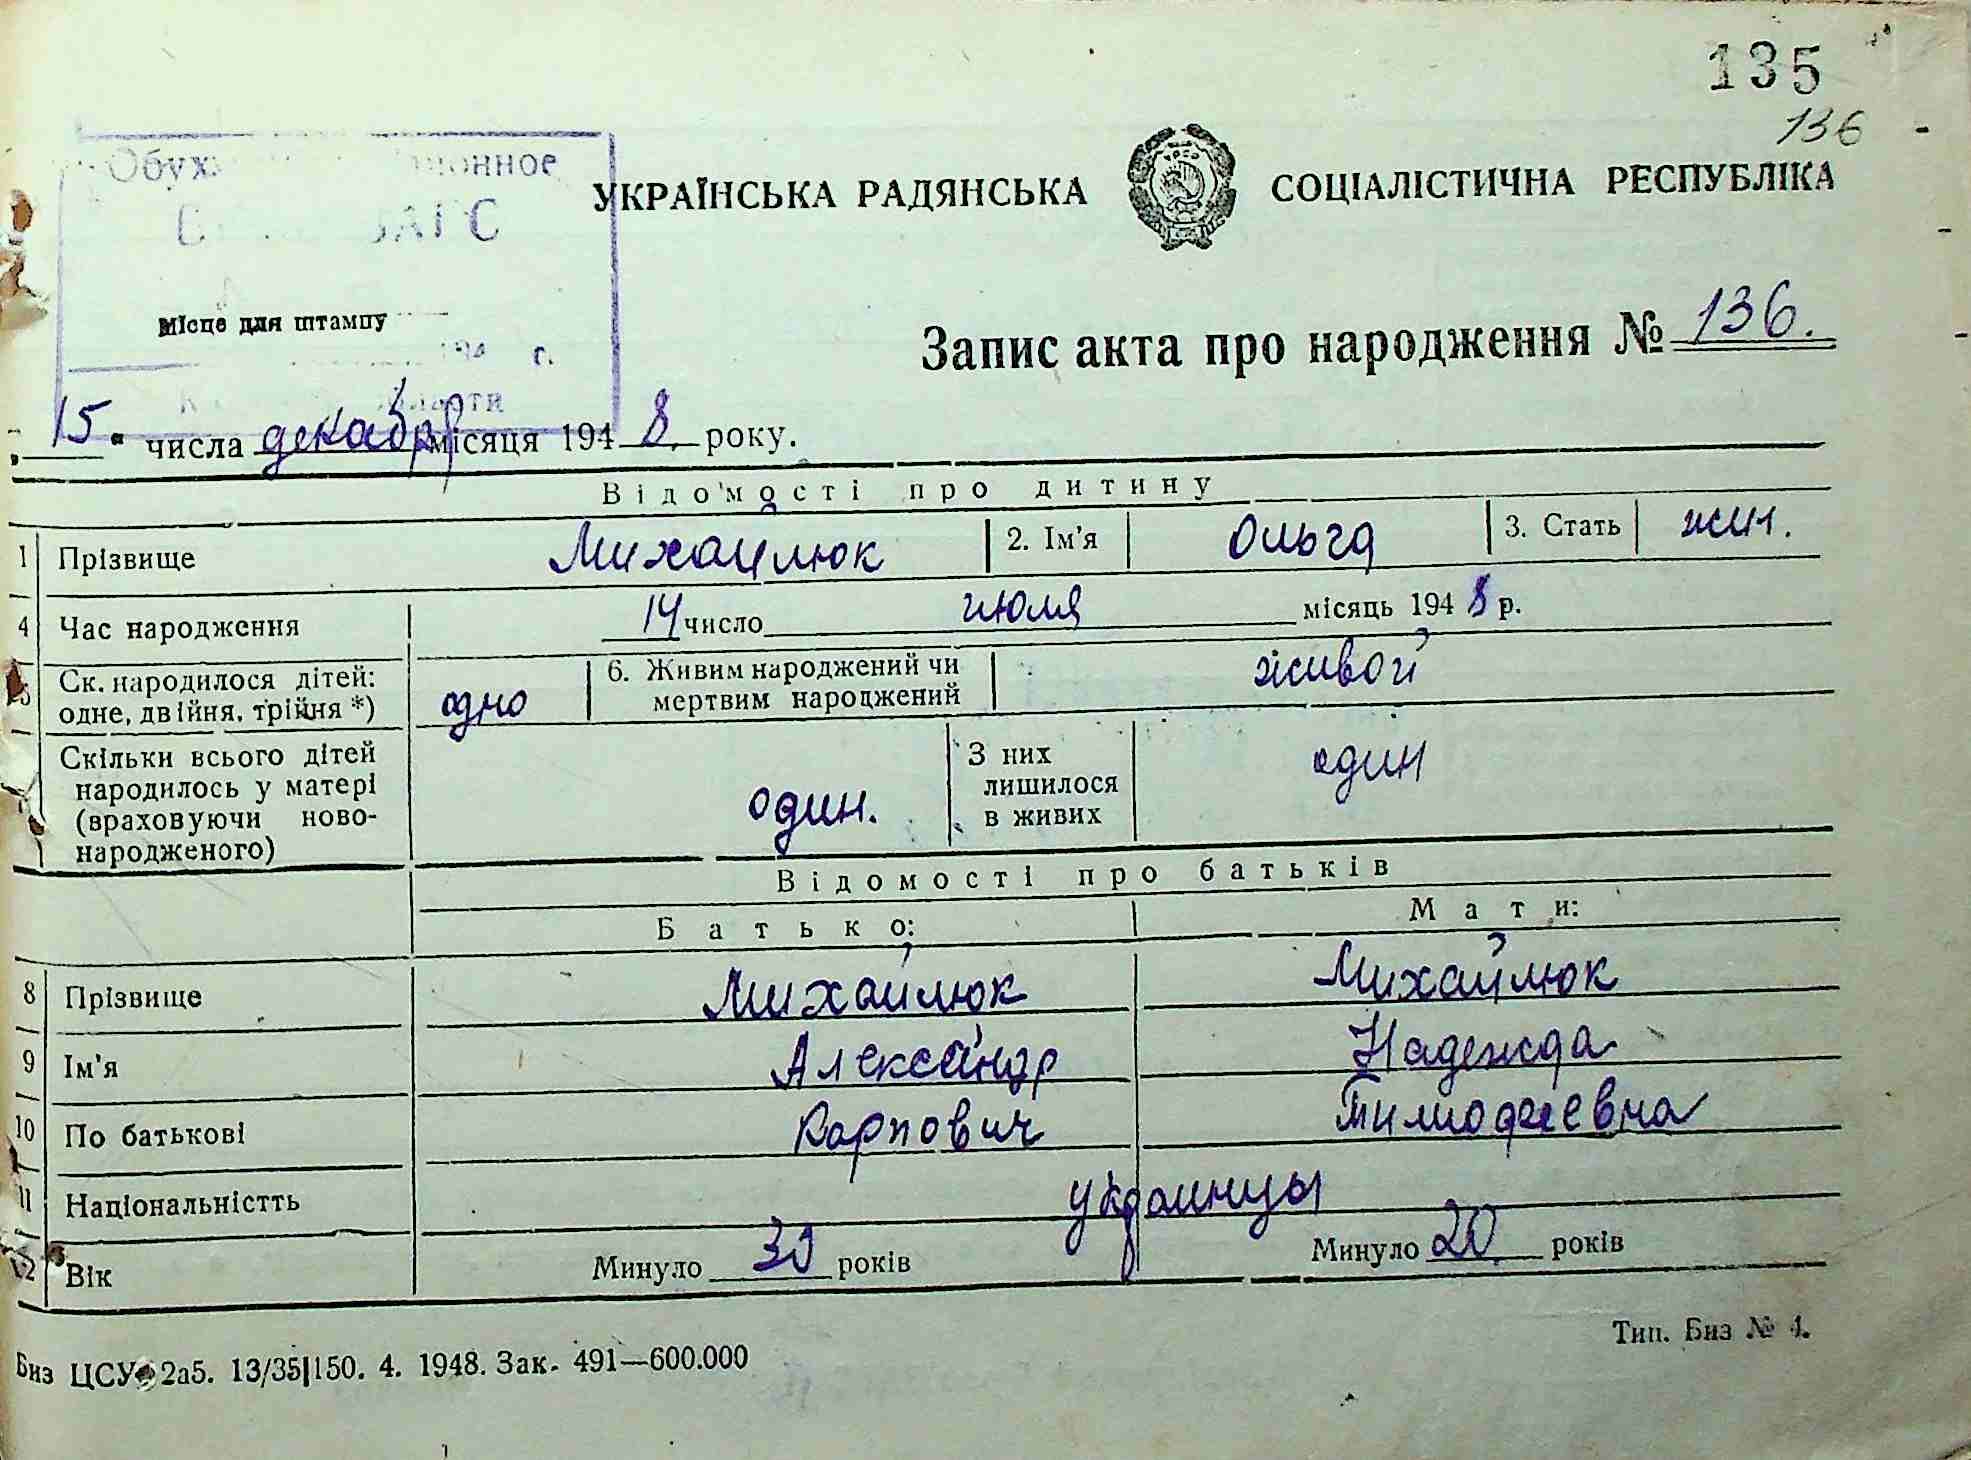 135
136
Обух онное
ЗАГС
УКРАЇНСЬКА РАДЯНСЬКА СОЦІАЛІСТИЧНА РЕСПУБЛІКА
Місце для штампу
194 г.
Запис акта про народження № 136.
області
15 числа декабр місяця 1948 року.
Відомості про дитину
1 Прізвище Михайлюк 2. Ім'я Ольга 3. Стать жин.
4 Час народження 14 число июля місяць 1948 р.
5 Ск. народилося дітей: одне, двійня, трійня *) одно 6. Живим народжений чи мертвим народжений живой
Скільки всього дітей народилось у матері (враховуючи ново-народженого) один. З них лишилося в живих один
Відомості про батьків
Батько: Мати:
8 Прізвище Михайлюк Михайлюк
9 Ім'я Александр Надежда
10 По батькові Карпович Тимофеевна
11 Національністть украинцы
12 Вік Минуло 30 років Минуло 20 років
Биз ЦСУ 2а5. 13/35|150. 4. 1948. Зак. 491—600.000
Тип. Биз № 4.